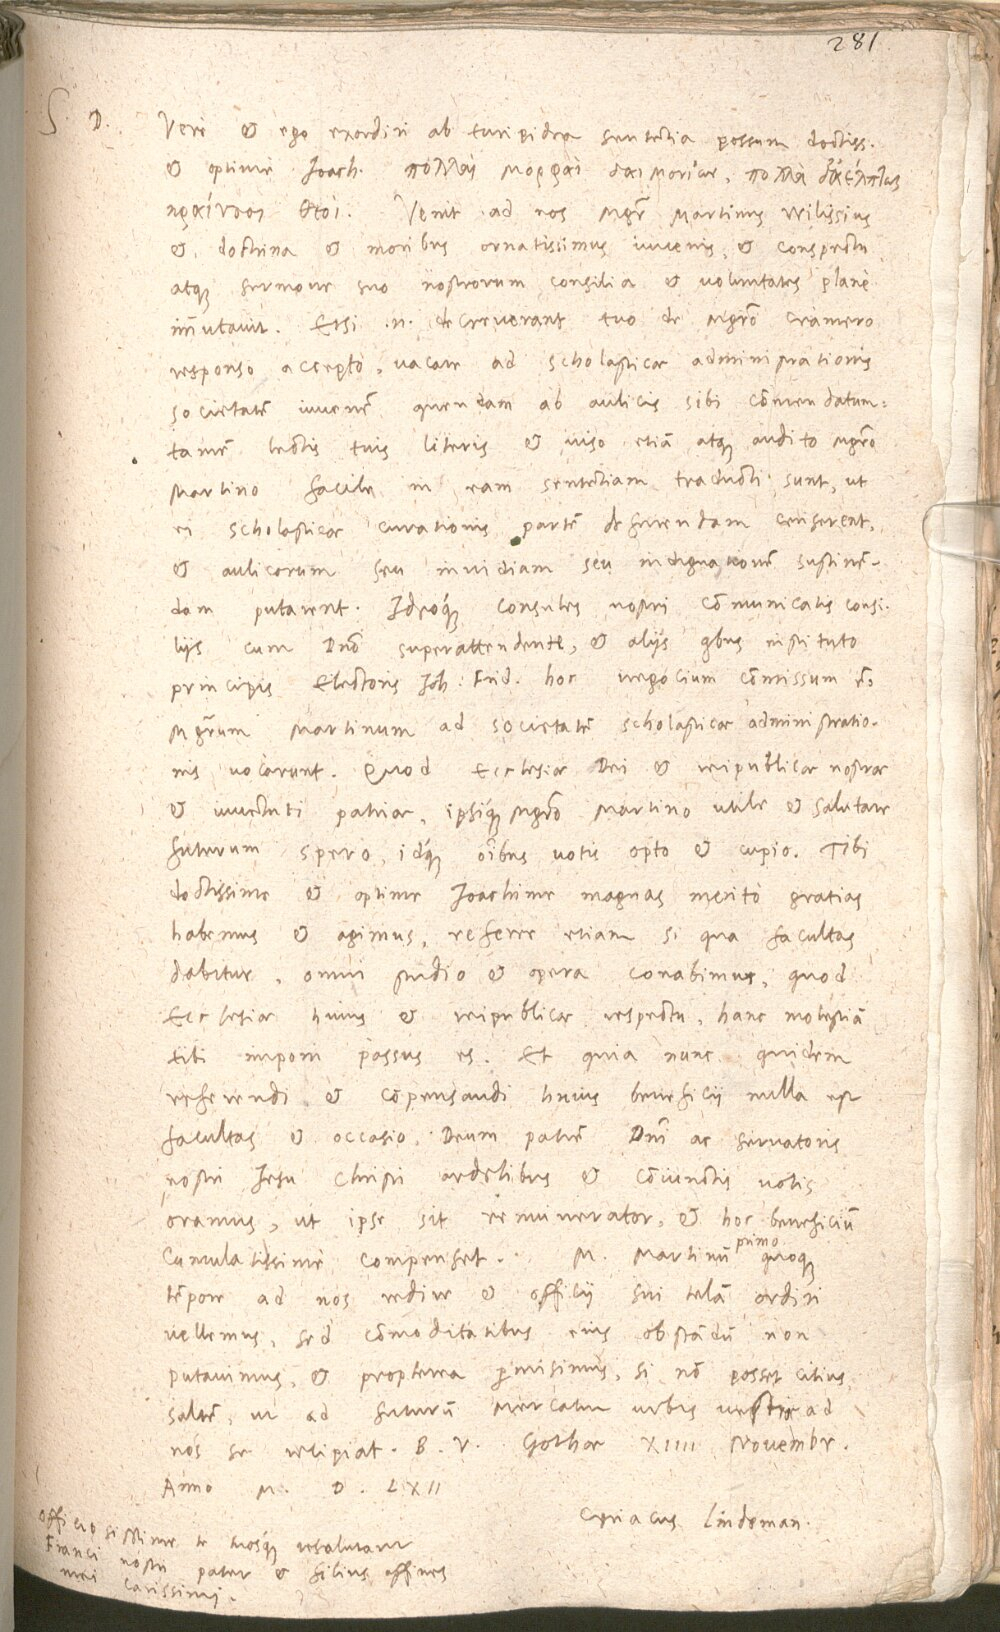 281
S. D. Verè & ego exordiri ab Euripidea sententia possum doctiss.
& optime Joach. πολλαὶ μορφαὶ δαιμονίων, πολλὰ δ' ἀέλπτως
κραίνουσι θεοί. Venit ad nos Mgr Martinus Wilissius
& doctrina & moribus ornatissimus iuuenis, & conspectu
atq; sermone suo nostrorum consilia & voluntates planè
im̄utauit. Etsi .n. decreuerant tuo de Mgrō Cramero
responso accepto, vacare ad scholasticae administrationis
societatē iuuenē quendam ab aulicis sibi cōmendatum:
tamē lectis tuis literis & uiso etiā atq; audito Mgrō
Martino facile in eam sententiam traducti sunt, ut
ei scholasticae curationis partē deferendam censerent,
& aulicorum seu inuidiam seu indignationē sustinē-
dam putarent. Ideoq; consules nostri cōmunicatis consi-
lijs cum Dnō superattendente, & alijs qbus instituto
principis Electoris Joh. Frid. hoc negocium cōmissum ē,
Mgrum Martinum ad societatē scholasticae administratio-
nis uocarunt. Quod Ecclesiae Dei & reipublicae nostrae
& iuuentuti patriae, ipsiq; Mgrō Martino utile & salutare
futurum spero, idq; oībus uotis opto & cupio. Tibi
doctissime & optime Joachime magnas meritò gratias
habemus & agimus, referre etiam si qua facultas
dabitur, omni studio & opera conabimur, quod
Ecclesiae huius & reipublicae respectu, hanc molestiā
tibi imponi passus es. Et quia nunc quidem
referendi & cōpensandi huius beneficij nulla est
facultas & occasio, Deum patrē Dnī ac seruatoris
nostri Jesu Christi ardētibus & cōiunctis uotis
oramus, ut ipse sit remunerator, & hoc beneficiū
cumulatissimè compenset. M. Martinū primo quoq;
tēpore ad nos redire & officij sui telā ordiri
uellemus, sed cōmoditatibus eius obstādū non
putauimus, & propterea ꝑmisimus, si nō posset citius,
saltē, ut ad futurū Mercatum urbis uestrae ad
nos se recipiat. B. V. Gothae XIIII Nouembr.
Anno M. D. LXII
Cyriacus Lindeman.
Officiosissime te tuosq; resalutant
Franci nostri pater & filius affines
mei carissimi.